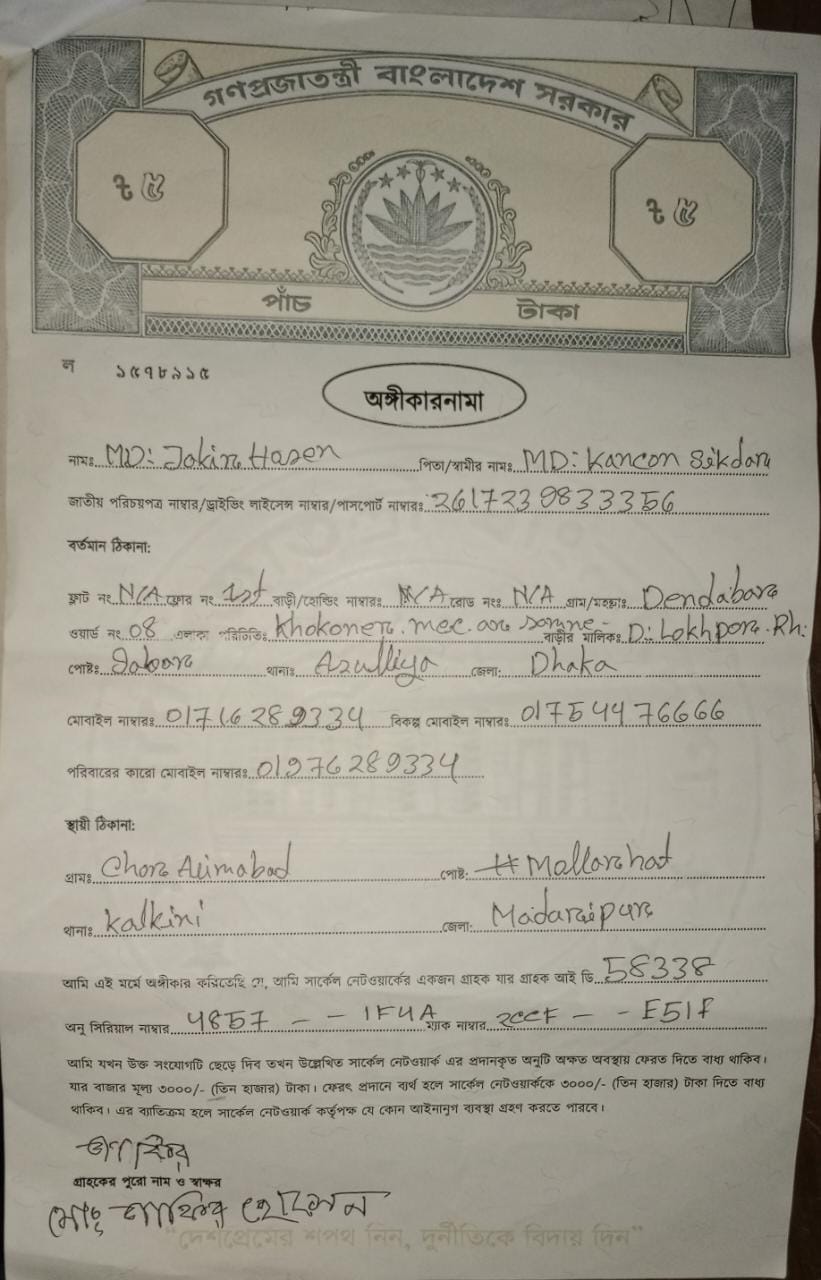 গণপ্রজাতন্ত্রী বাংলাদেশ সরকার
৳ ৫ ৳ ৫
পাঁচ টাকা
ল ১৫৭৮৯১৫
অঙ্গীকারনামা
নামঃ MD: Jakir Hasen পিতা/স্বামীর নামঃ MD: Kancon Sikdar
জাতীয় পরিচয়পত্র নাম্বার/ড্রাইভিং লাইসেন্স নাম্বার/পাসপোর্ট নাম্বারঃ 2617239833356
বর্তমান ঠিকানা:
ফ্লাট নং N/A ফ্লোর নং 1st বাড়ী/হোল্ডিং নাম্বারঃ N/A রোড নংঃ N/A গ্রাম/মহল্লাঃ Dendabar
ওয়ার্ড নং 08 এলাকা পরিচিতিঃ Khokoner mec ar samne বাড়ীর মালিকঃ D: Lokhpor Rh:
পোষ্টঃ Sabar থানাঃ জেলা: Dhaka
মোবাইল নাম্বারঃ 01716289334 বিকল্প মোবাইল নাম্বারঃ 01754476666
পরিবারের কারো মোবাইল নাম্বারঃ 01976289334
স্থায়ী ঠিকানা:
গ্রামঃ Chor Alimabad পোষ্ট: Mollarhat
থানাঃ Kalkini জেলা: Madaripur
আমি এই মর্মে অঙ্গীকার করিতেছি যে, আমি সার্কেল নেটওয়ার্কের একজন গ্রাহক যার গ্রাহক আই ডি 58338
অনু সিরিয়াল নাম্বার 4857 - - 1F4A ম্যাক নাম্বার 2CCF - - E51F
আমি যখন উক্ত সংযোগটি ছেড়ে দিব তখন উল্লেখিত সার্কেল নেটওয়ার্ক এর প্রদানকৃত অনুটি অক্ষত অবস্থায় ফেরত দিতে বাধ্য থাকিব।
যার বাজার মূল্য ৩০০০/- (তিন হাজার) টাকা। ফেরৎ প্রদানে ব্যর্থ হলে সার্কেল নেটওয়ার্ককে ৩০০০/- (তিন হাজার) টাকা দিতে বাধ্য
থাকিব। এর ব্যাতিক্রম হলে সার্কেল নেটওয়ার্ক কর্তৃপক্ষ যে কোন আইনানুগ ব্যবস্থা গ্রহণ করতে পারবে।
জাকির
গ্রাহকের পুরো নাম ও স্বাক্ষর
মোঃ জাকির হোসেন
"দেশপ্রেমের শপথ নিন, দুর্নীতিকে বিদায় দিন"